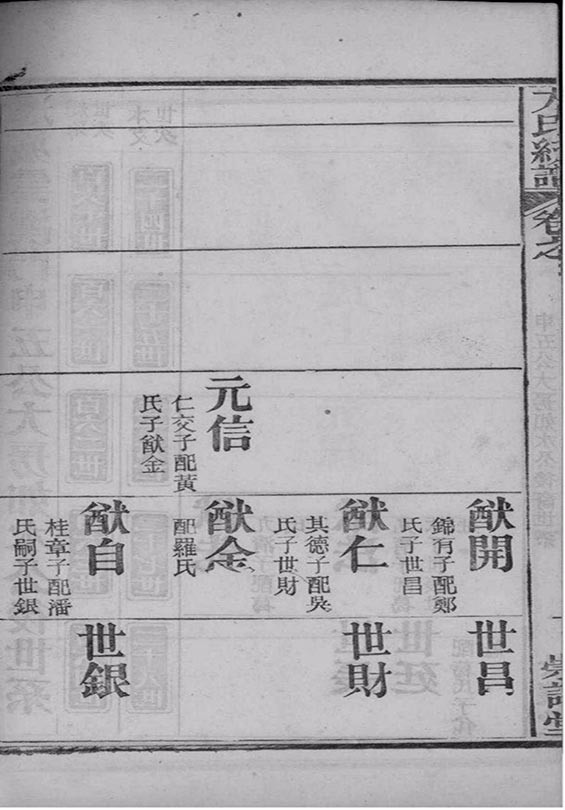 卷之
元信
仁交子配黃
氏子猷金
猷開
錦有子配鄭
氏子世昌
猷仁
其德子配吳
氏子世財
猷金
配羅氏
猷自
桂章子配潘
氏嗣子世銀
世昌
世財
世銀